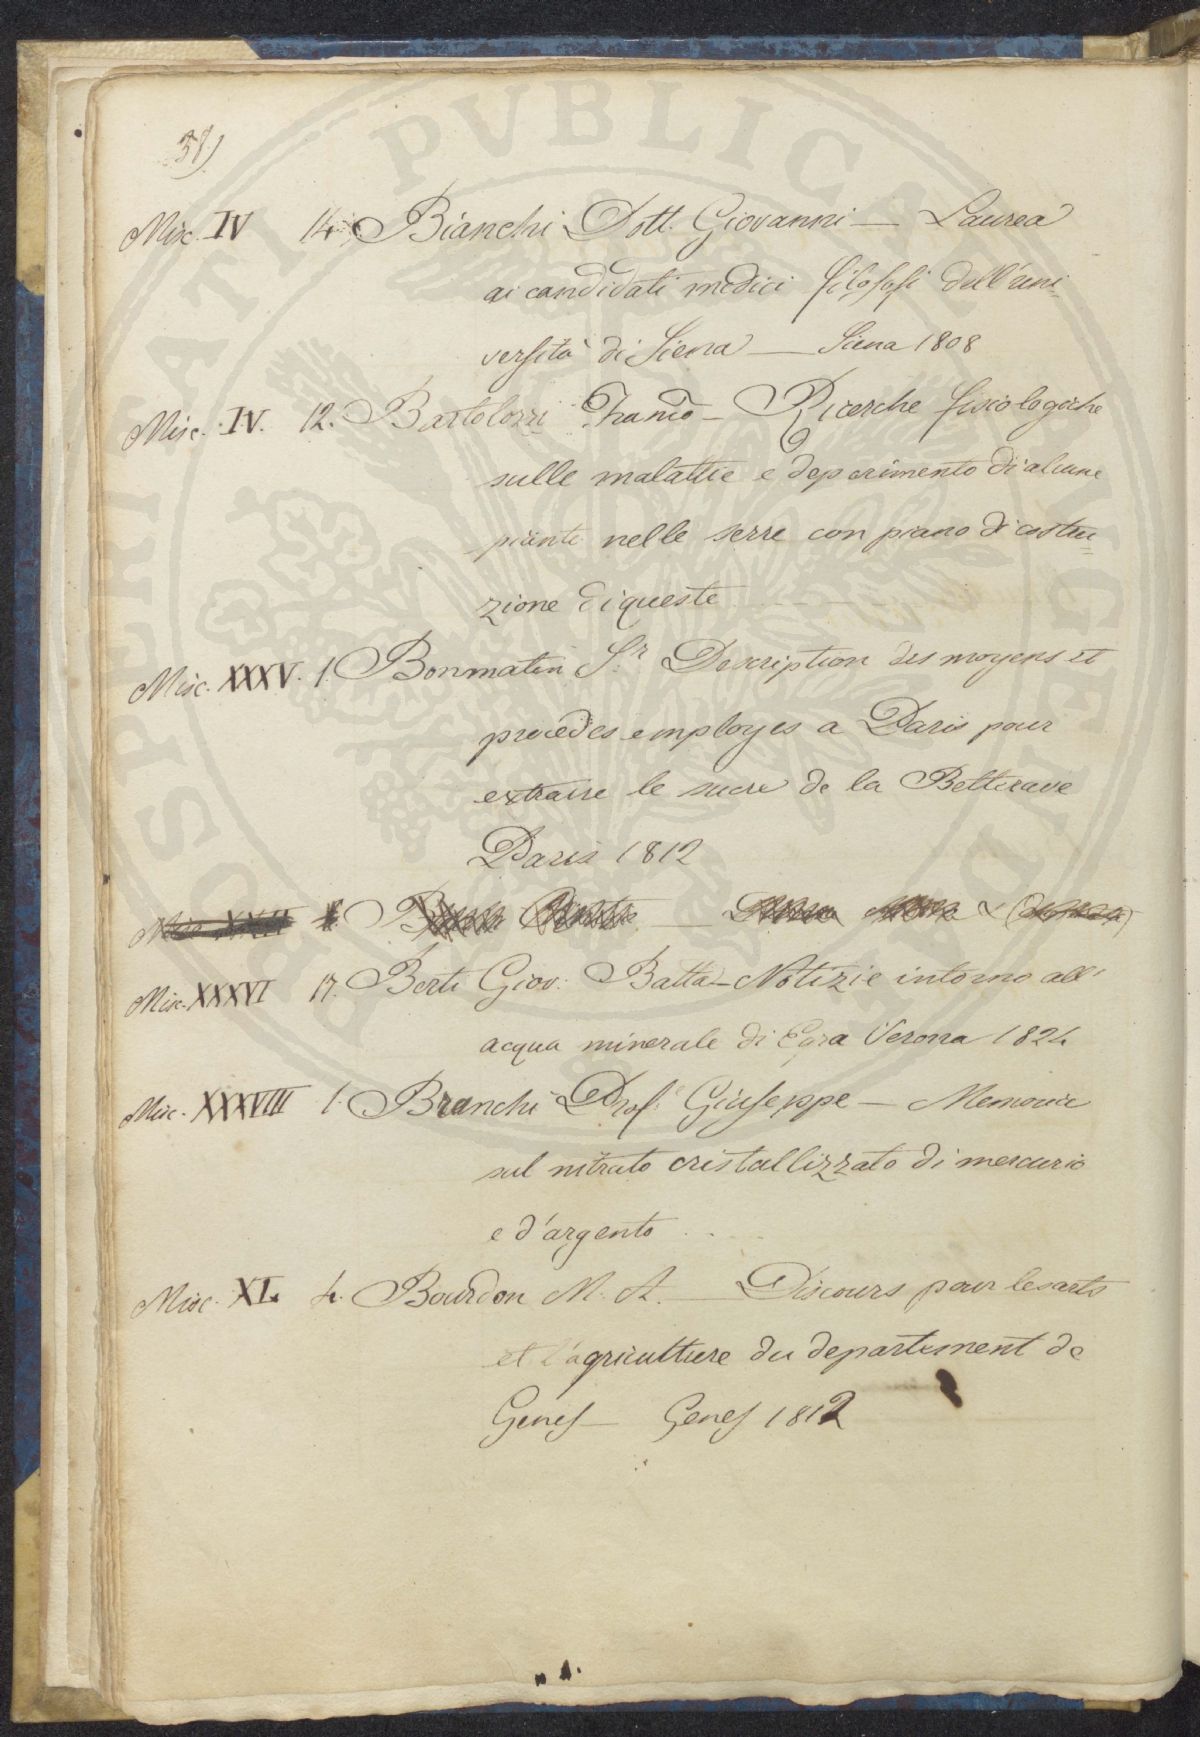 38)
Misc. IV 14. Bianchi Dott. Giovanni — Laurea
ai candidati medici filosofi dell'uni-
versità di Siena — Siena 1808
Misc. IV. 12. Bartolozzi Franco — Ricerche fisiologiche
sulle malattie e deperimento di alcune
piante nelle serre con piano di costru=
zione di queste
Misc. XXXV. 1. Bonmatin Sr. Description des moyens et
procedes employes a Paris pour
extraire le sucre de la Betterave
Paris 1812
Misc. XXXVI 17. Berti Giov. Batta — Notizie intorno all'
acqua minerale di Egra Verona 1824
Misc. XXXVIII 1. Branchi Prof. Giuseppe — Memoria
sul nitrato cristallizzato di mercurio
e d'argento
Misc. XL 4. Bourdon M. A. — Discours pour les arts
et l'agriculture du departement de
Genes — Genes 1812